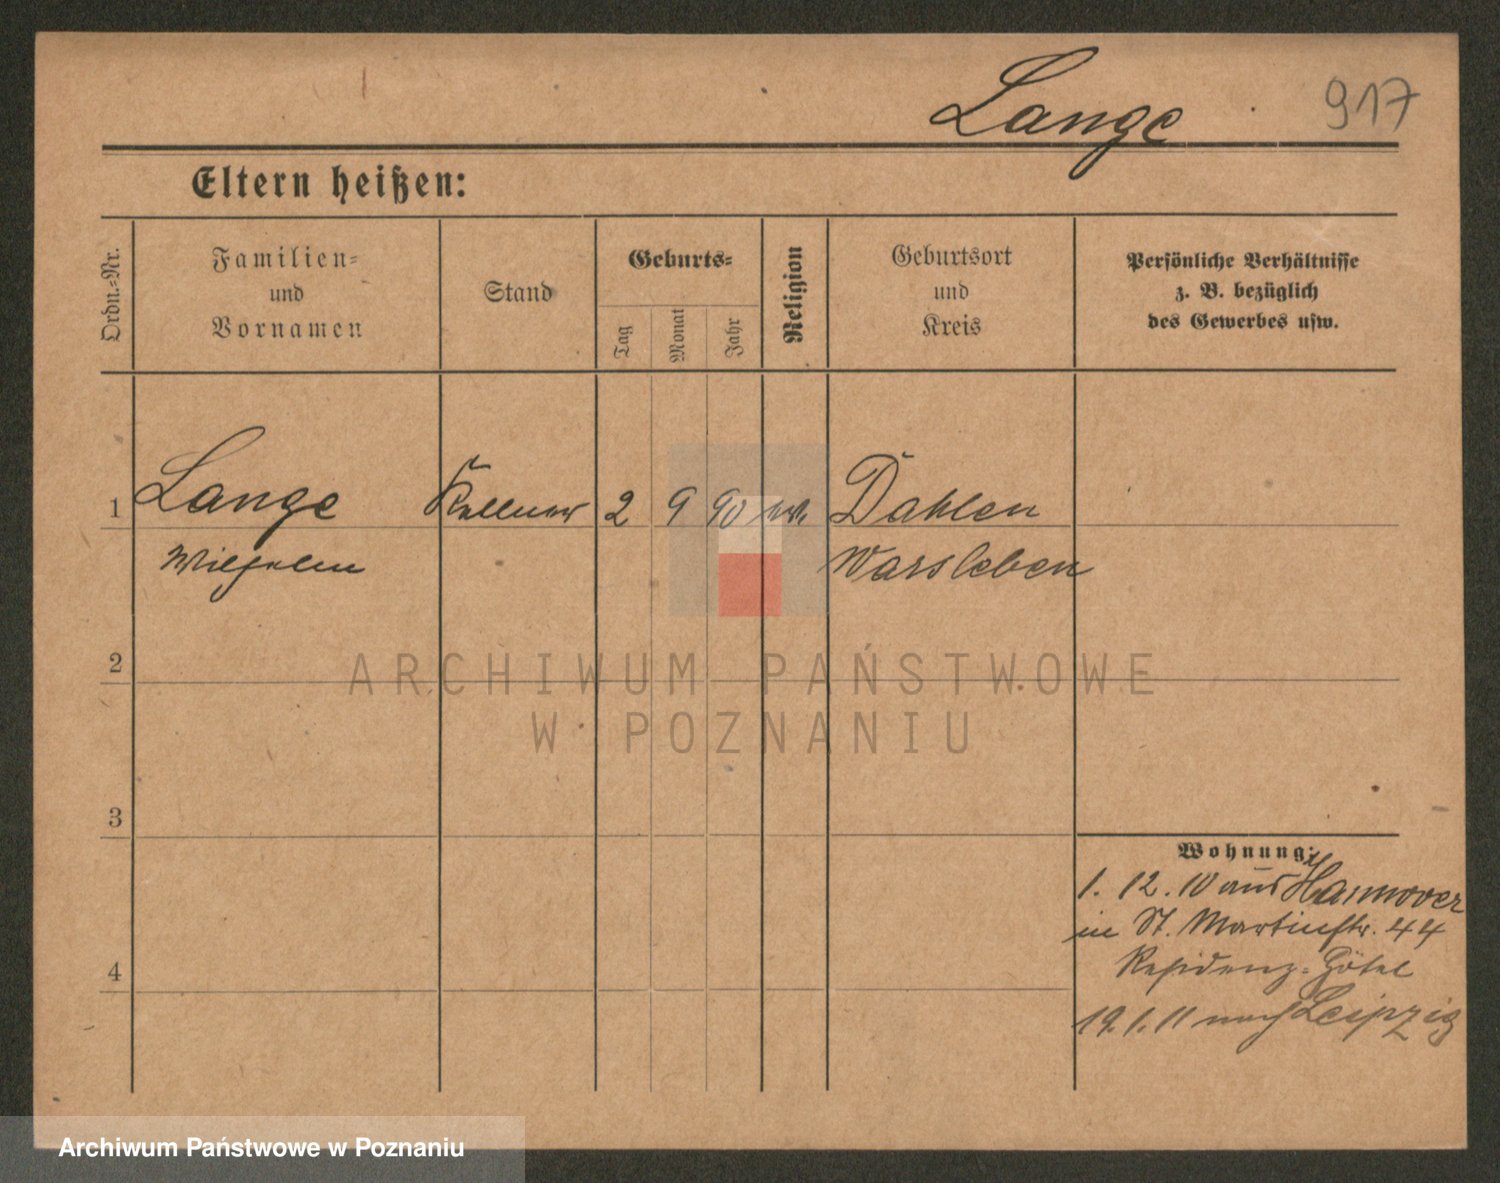 Lange 917
Eltern heißen:
Ordn.=Nr.
Familien=
und
Vornamen
Stand
Geburts=
Tag
Monat
Jahr
Religion
Geburtsort
und
Kreis
Persönliche Verhältnisse
z. B. bezüglich
des Gewerbes usw.
1 Lange Kellner 2 9 90 ev. Dahlen
Wilhelm Warsleben
2
3
4
Wohnung:
1. 12. 10 aus Hannover
in St. Martinstr. 44
Residenz=Hôtel
19. 1. 11 nach Leipzig
ARCHIWUM PAŃSTWOWE
W POZNANIU
Archiwum Państwowe w Poznaniu